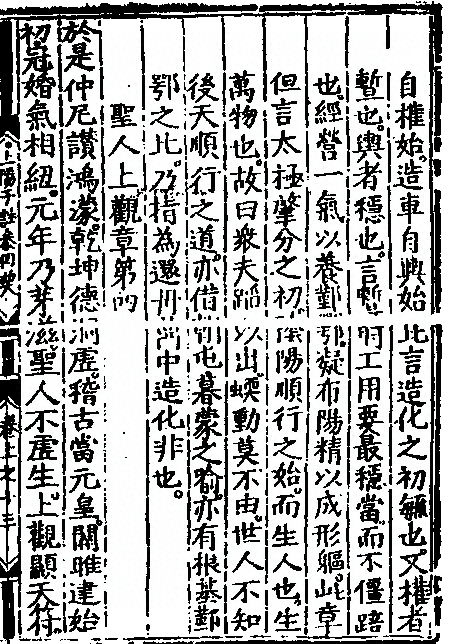 自權始。造車自輿始此言造化之初也。又權者
暫也。輿者穩也。言暫時工用要最穩當。而不僵踣
也。經營一氣。以養鄞鄂。凝布陽精以成形軀。此章
但言太極肇分之初。陰陽順行之始。而生人也。生
萬物也。故曰衆夫蹈以出。蝡動莫不由。世人不知
後天順行之道。亦借朝屯暮蒙之喻。亦有根基鄞
鄂之比。乃指為還丹中造化非也。
聖人上觀章第四
於是仲尼讚鴻濛。乾坤德洞虛。稽古當元皇。關雎建始
初。冠婚氣相紐。元年乃芽滋。聖人不虛生。上觀顯天符。
上陽子註參同契
卷上之十三